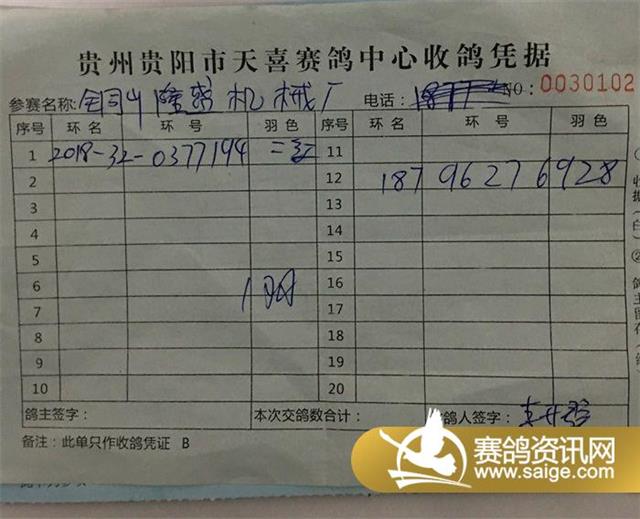 贵州贵阳市天喜赛鸽中心收鸽凭据
参赛名称: 铜山隆 机械厂 电话: NO: 0030102
序号 环名 环号 羽色 序号 环名 环号 羽色
1 2018-32-0377194 二红 11
2 12 18796276928
3 13
4 14
5 15
6 1羽 16
7 17
8 18
9 19
10 20
鸽主签字: 本次交鸽数合计: 鸽人签字:
备注: 此单只作收鸽凭证 B
赛鸽资讯网
www.saige.com